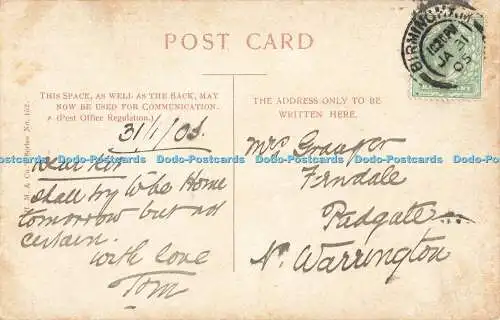 POST CARD
BIRMINGHAM
JA 31
05
THIS SPACE, AS WELL AS THE BACK, MAY
NOW BE USED FOR COMMUNICATION.
(Post Office Regulation.)
THE ADDRESS ONLY TO BE
WRITTEN HERE.
31/1/05.
Dear
shall try to be Home
tomorrow but not
certain.
with love
Tom
Mrs Granger
Ferndale
Padgate
Nr. Warrington
Dodo-Postcards Dodo-Postcards Dodo-Postcards Dodo-Postcards Dodo-Postcards